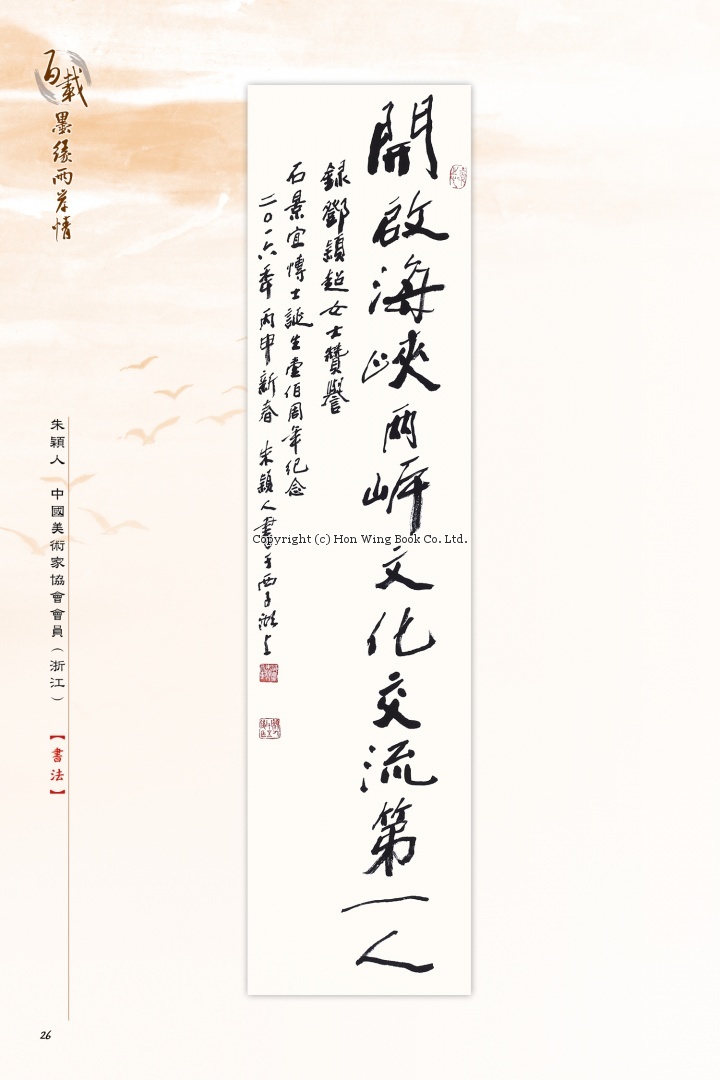 百載墨緣兩岸情
開啟海峽兩岸文化交流第一人
録鄧穎超女士贊譽
石景宜博士誕生壹佰周年紀念
二〇一六年 丙申新春 朱穎人書于西子湖上
朱穎人 中國美術家協會會員（浙江）
【書法】
Copyright (c) Hon Wing Book Co. Ltd.
26